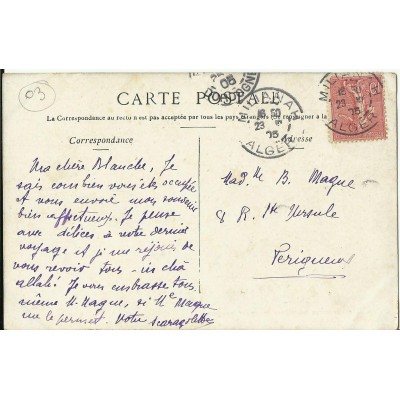 03
CARTE POSTALE
La Correspondance au recto n'est pas acceptée par tous les pays étrangers (Se renseigner à la
Correspondance
Adresse
MILIANAH
ALGER
23 5 05
MILIANAH
ALGER
23 5 05
Ma chère Blanche, Je
sais combien vous êtes occupée
et vous envoie mon souvenir
bien affectueux. Je pense
avec délices à notre dernier
voyage et je me réjouis de
vous revoir tous - in chà
allah! Je vous embrasse tous,
même M. Magne, si Me Magne
me le permet. Votre
Mad. lle B. Magne
8 R. Ste Ursule
Périgueux